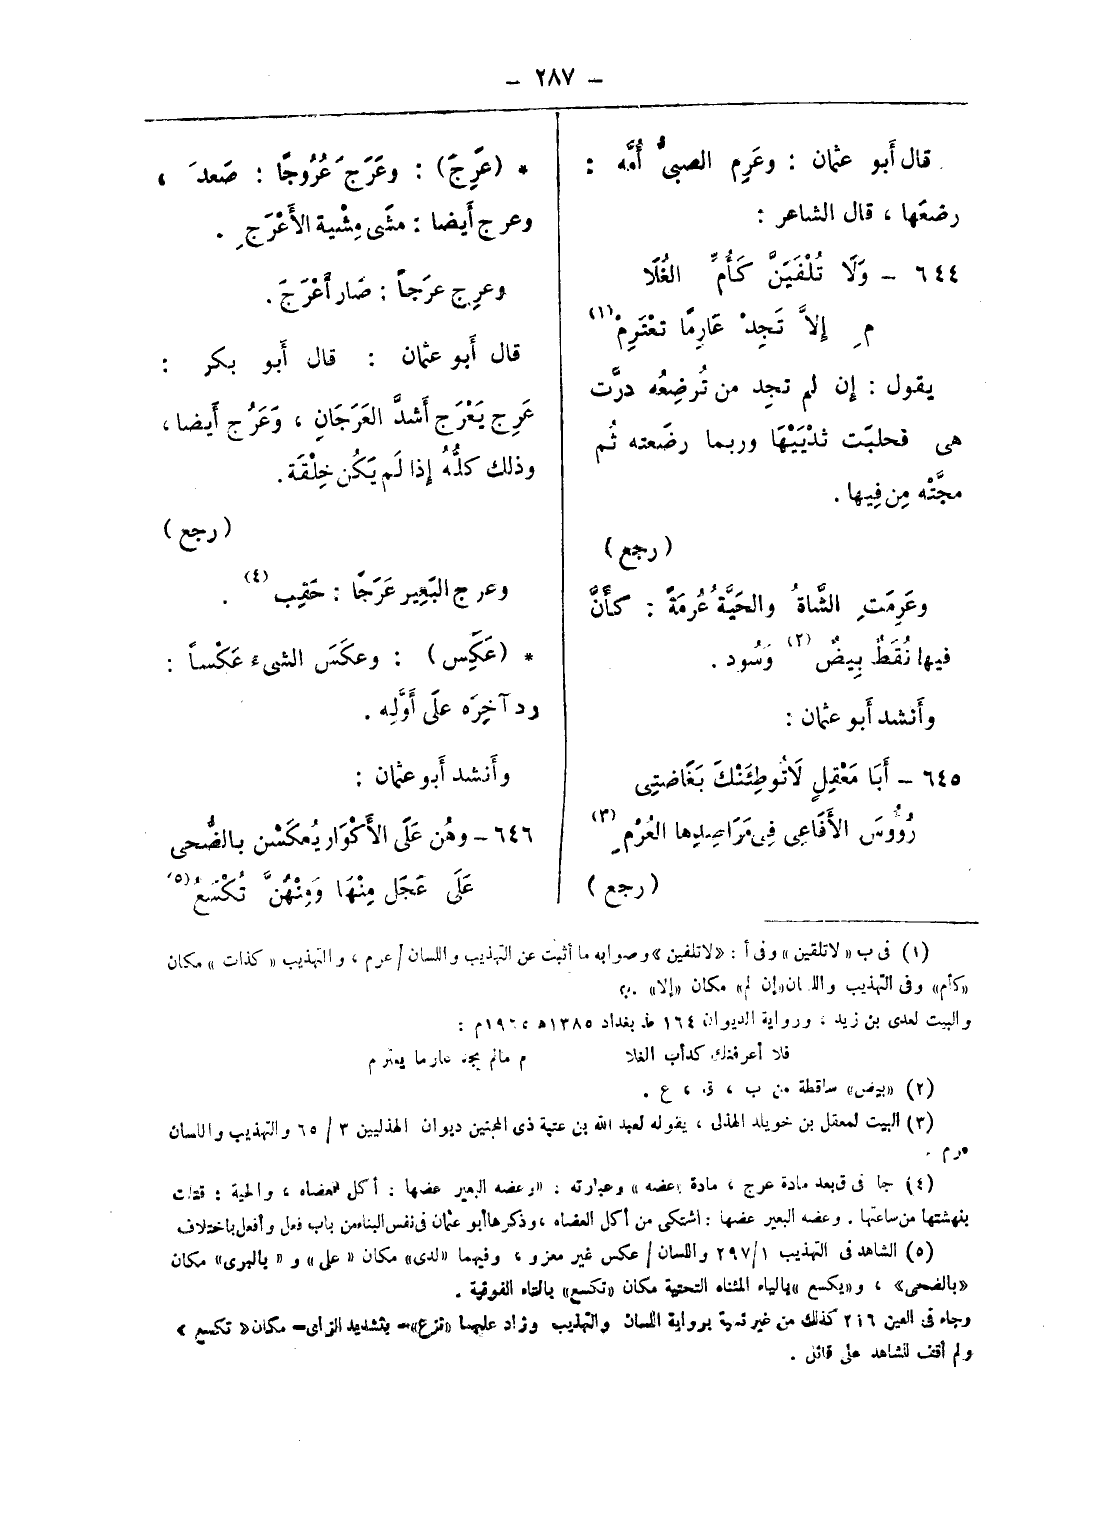 – ٢٨٧ –
قال أبو عثمان : وعَرِم الصبىُّ أُمَّه :
رضعَها ، قال الشاعر :
٦٤٤ – وَلَا تُلْفَيَنَّ كَأُمِّ الغُلَا
مِ إلاَّ تَجِدْ عَارِمًا تعْتَرِمْ (١)
يقول : إن لم تجد من تُرضِعُه درَّت
هى فحلبَت ثدْيَيْهَا وربما رضَعته ثُم
مجَّتْه مِن فِيها .
( رجع )
وعَرِمَتِ الشَّاةُ والحَيَّةُ عُرمَةً : كأَنَّ
فيها نُقَطٌ بِيضٌ (٢) وَسُود .
وأنشد أبو عثمان :
٦٤٥ – أَبَا مَعْقِلٍ لَاتُوطِئَنْكَ بَغَاضتِى
رُؤُوسَ الأَفَاعِى فِى مَرَاصِدِها العُرْمِ (٣)
( رجع )
* (عَرَِجَ) : وعَرَجَ عُرُوجًا : صَعدَ ،
وعرج أَيضا : مشَى مِشْية الأَعْرَجِ .
وعرِج عرَجاً : صَار أَعْرَجَ .
قال أَبو عثمان : قال أَبو بكر :
عَرِج يَعْرَج أَشدَّ العَرَجَانِ ، وَعَرُج أَيضا ،
وذلك كلُّهُ إذا لَم يَكُن خِلْقَة .
( رجع )
وعرج البَعِير عَرَجًا : حَقِب (٤) .
* (عَكَِس) : وعكَسَ الشىء عَكْساً :
رد آخِرَه علَى أَوَّلِه .
وأَنشد أَبو عثمان :
٦٤٦ – وهُن عَلَى الأَكْوَار يُعكَسْن بالضُّحى
عَلَى عَجَل مِنْهَا وَمِنْهُنَّ تُكْسَعُ (٥)
(١) فى ب «لاتلقين» وفى أ : «لاتلفين» وصوابه ما أثبت عن التهذيب واللسان / عرم ، والتهذيب «كذات» مكان
«كأم» وفى التهذيب واللسان «إن لم» مكان «إلا» .
والبيت لعدى بن زيد ، ورواية الديوان ١٦٤ ط بغداد ١٣٨٥ه ١٩٦٥م :
فلا أعرفنك كدأب الغلا م مالم يجد عارما يعترم
(٢) «بيض» ساقطة من ب ، ق ، ع .
(٣) البيت لمعقل بن خويلد الهذلى ، يقوله لعبد الله بن عتيبة ذى المجنين ديوان الهذليين ٣ / ٦٥ والتهذيب واللسان
عرم .
(٤) جا فى ق بعد مادة عرج ، مادة «عضه» وعبارته : «وعضه البعير عضها : أكل العضاه ، والحية : قتلت
بنهشتها من ساعتها . وعضه البعير عضها : اشتكى من أكل العضاه ، وذكرها أبو عثمان فى نفس البناء من باب فعل وأفعل باختلاف
(٥) الشاهد فى التهذيب ١/ ٢٩٧ واللسان / عكس غير معزو ، وفيهما «لدى» مكان «على» و «بالبرى» مكان
«بالضحى» ، و«يكسع» بالياء المثناه التحتية مكان «تكسع» بالتاء الفوقية .
وجاء فى العين ٢١٦ كذلك من غير نسبة برواية اللسان والتهذيب وزاد عليهما «تزع» – بتشديد الزاى – مكان «تكسع»
ولم أقف للشاهد على قائل .